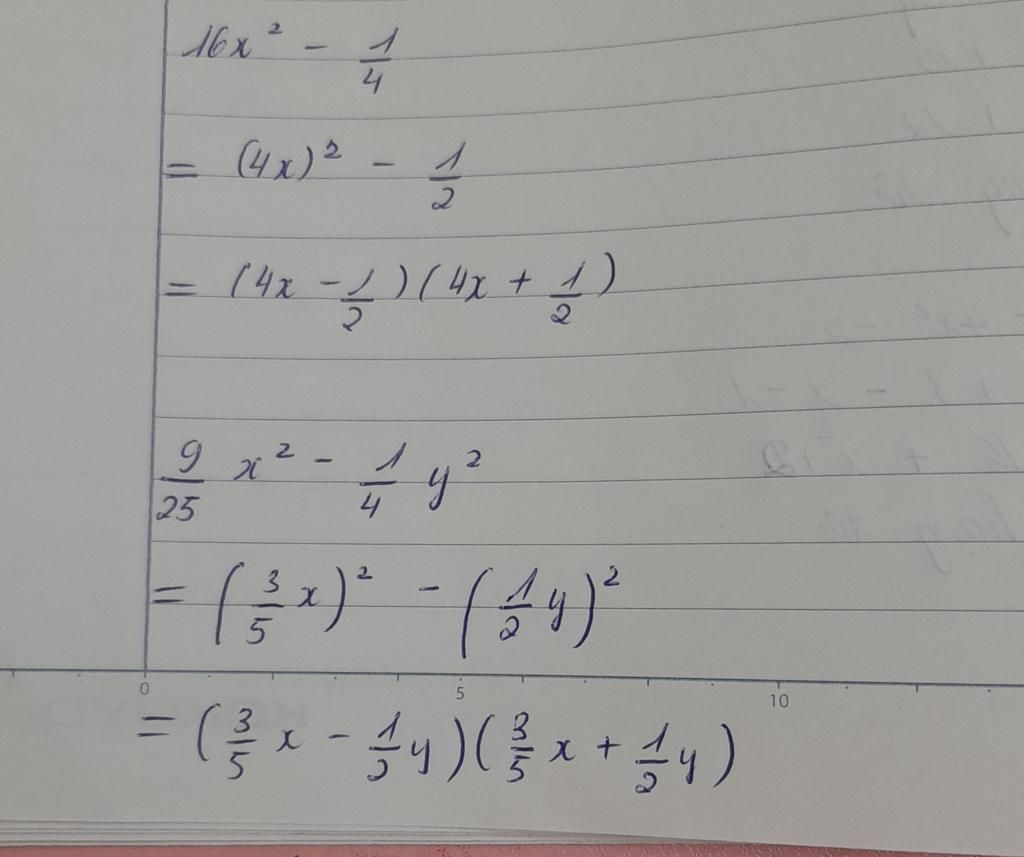 16x² - 1/4
= (4x)² - 1/2
= (4x - 1/2)(4x + 1/2)
9/25 x² - 1/4 y²
= (3/5 x)² - (1/2 y)²
0 5 10
= (3/5 x - 1/2 y)(3/5 x + 1/2 y)